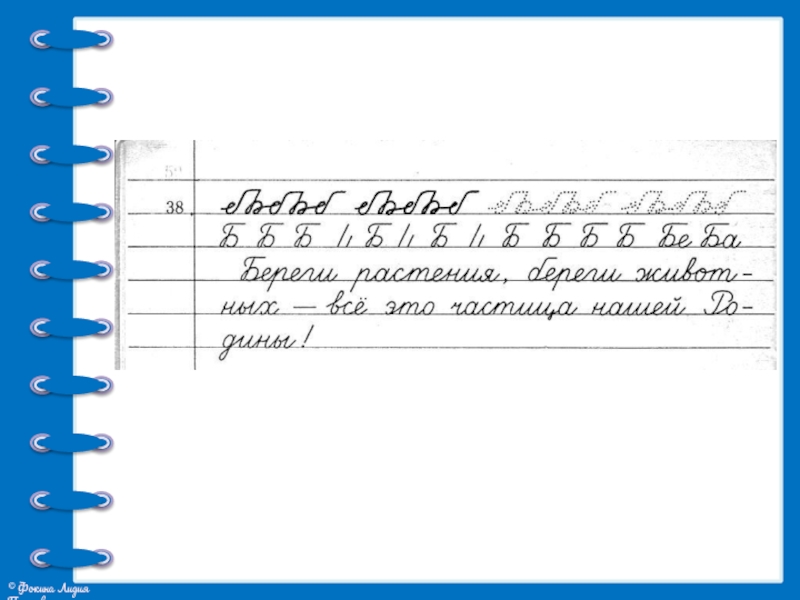 38
Б Б Б Б Б Б Б Б Б Бе Ба
Береги растения, береги живот-
ных — всё это частица нашей Ро-
дины!
© Фокина Лидия